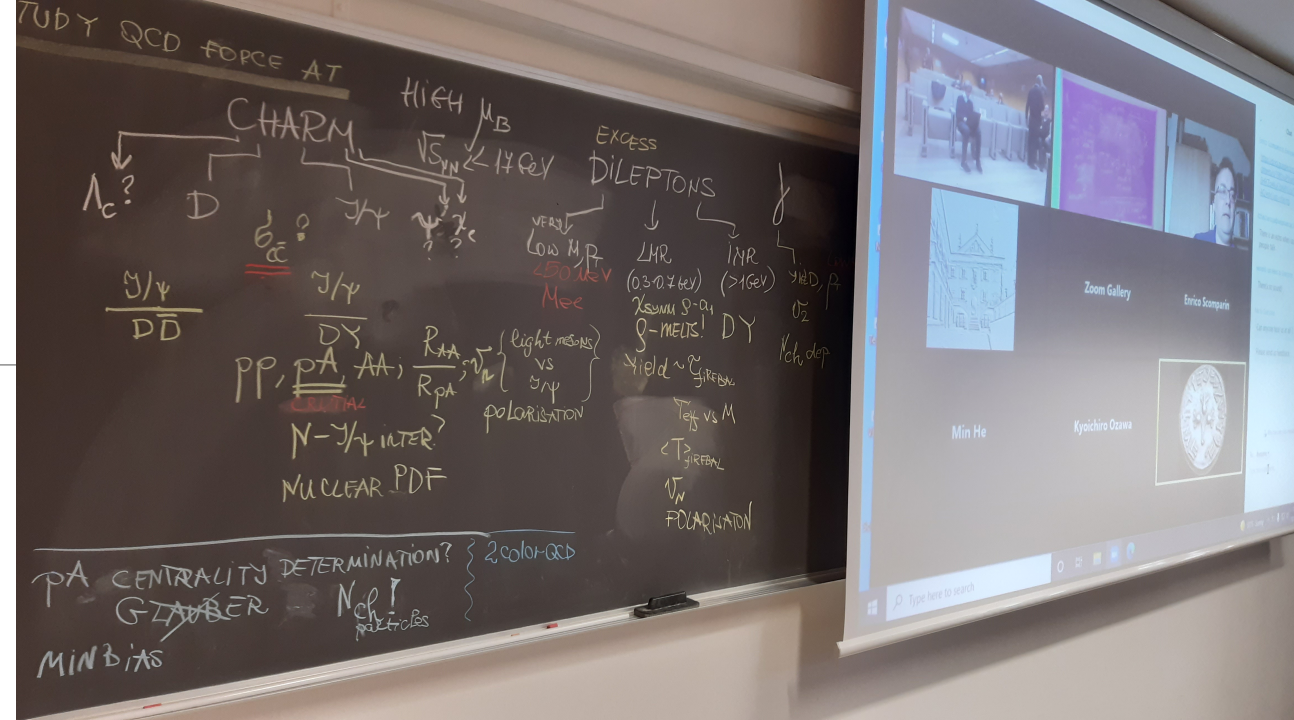 TUDY QCD FORCE AT
CHARM
HIGH μB
√SNN < 17 GeV
Λc?
D
J/ψ
ψ' χc
? ?
σcc̄ ?
J/ψ
DD̄
J/ψ
DY
pp, pA, AA; RAA/RpA; vn { light mesons vs J/ψ }
CRUCIAL
POLARISATION
N-J/ψ INTER?
NUCLEAR PDF
EXCESS
DiLEPTONS
VERY
LOW M, pT
<50 MeV
Mee
LMR
(0.3-0.7 GeV)
χSYMM ρ-a1
ρ-MELTS!
Yield ~ τFIREBAL
Teff vs M
<T>FIREBAL
vN
POLARISATON
IMR
(>1GeV)
DY
γ
YIELD, pT
v2
Nch dep
pA CENTRALITY DETERMINATION?
GLAUBER
Nch!
particles
MINBiAS
2 color QCD
Zoom Gallery
Enrico Scomparin
Min He
Kyoichiro Ozawa
Type here to search